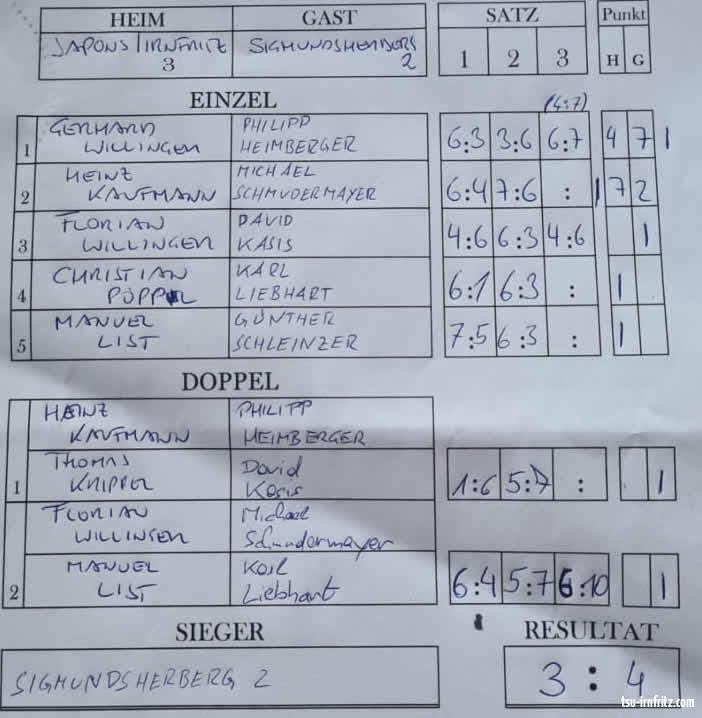 HEIM GAST SATZ Punkt
JAPONS/IRNFRITZ SIGMUNDSHERBERG
3 2 1 2 3 H G
EINZEL (4:7)
GERHARD PHILIPP
1 WILLINGER HEIMBERGER 6:3 3:6 6:7 4 7 1
HEINZ MICHAEL
2 KAUFMANN SCHMUDERMAYER 6:4 7:6 : 1 7 2
FLORIAN DAVID
3 WILLINGER KASIS 4:6 6:3 4:6 1
CHRISTIAN KARL
4 PÖPPL LIEBHART 6:1 6:3 : 1
MANUEL GÜNTHER
5 LIST SCHLEINZER 7:5 6:3 : 1
DOPPEL
HEINZ PHILIPP
KAUFMANN HEIMBERGER
THOMAS David
1 KNIPPEL Kasis 1:6 5:7 : 1
FLORIAN Michael
WILLINGER Schmudermayer
MANUEL Karl
2 LIST Liebhart 6:4 5:7 6:10 1
SIEGER RESULTAT
SIGMUNDSHERBERG 2 3 : 4
tsu-irnfritz.com